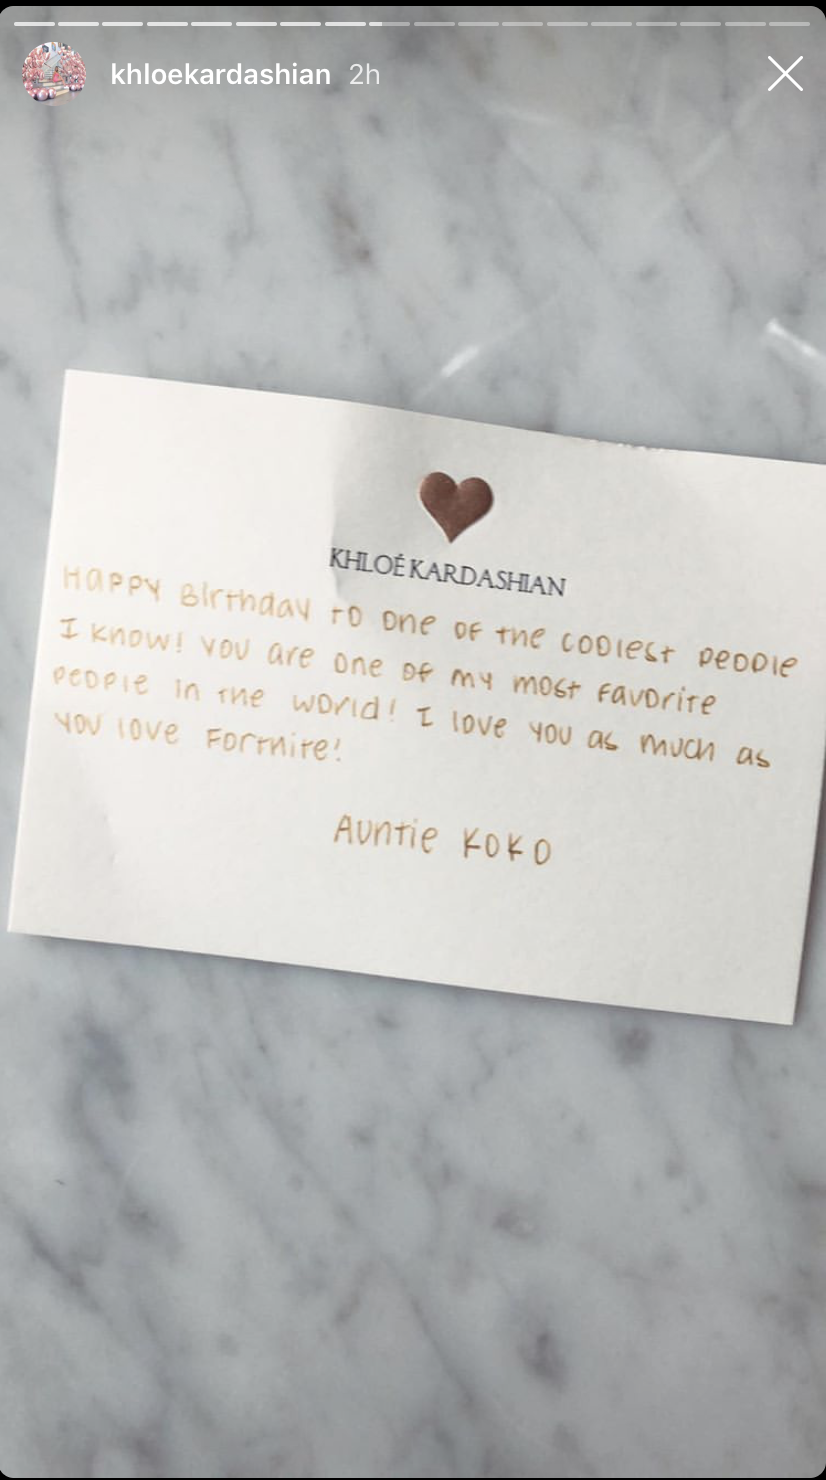 khloekardashian 2h
KHLOÉ KARDASHIAN
HAPPY Birthday to one of the coolest people
I know! you are one of my most favorite
people in the world! I love you as much as
you love Fortnite!
Auntie KOKO